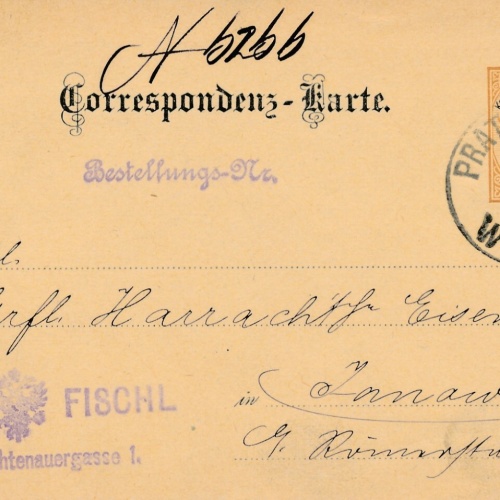 N 6266
Correspondenz-Karte.
Bestellungs-Nr.
PRAT
W
rfl. Harrach'sche Eisen
FISCHL
in Janow
htenauergasse 1.
Römerst